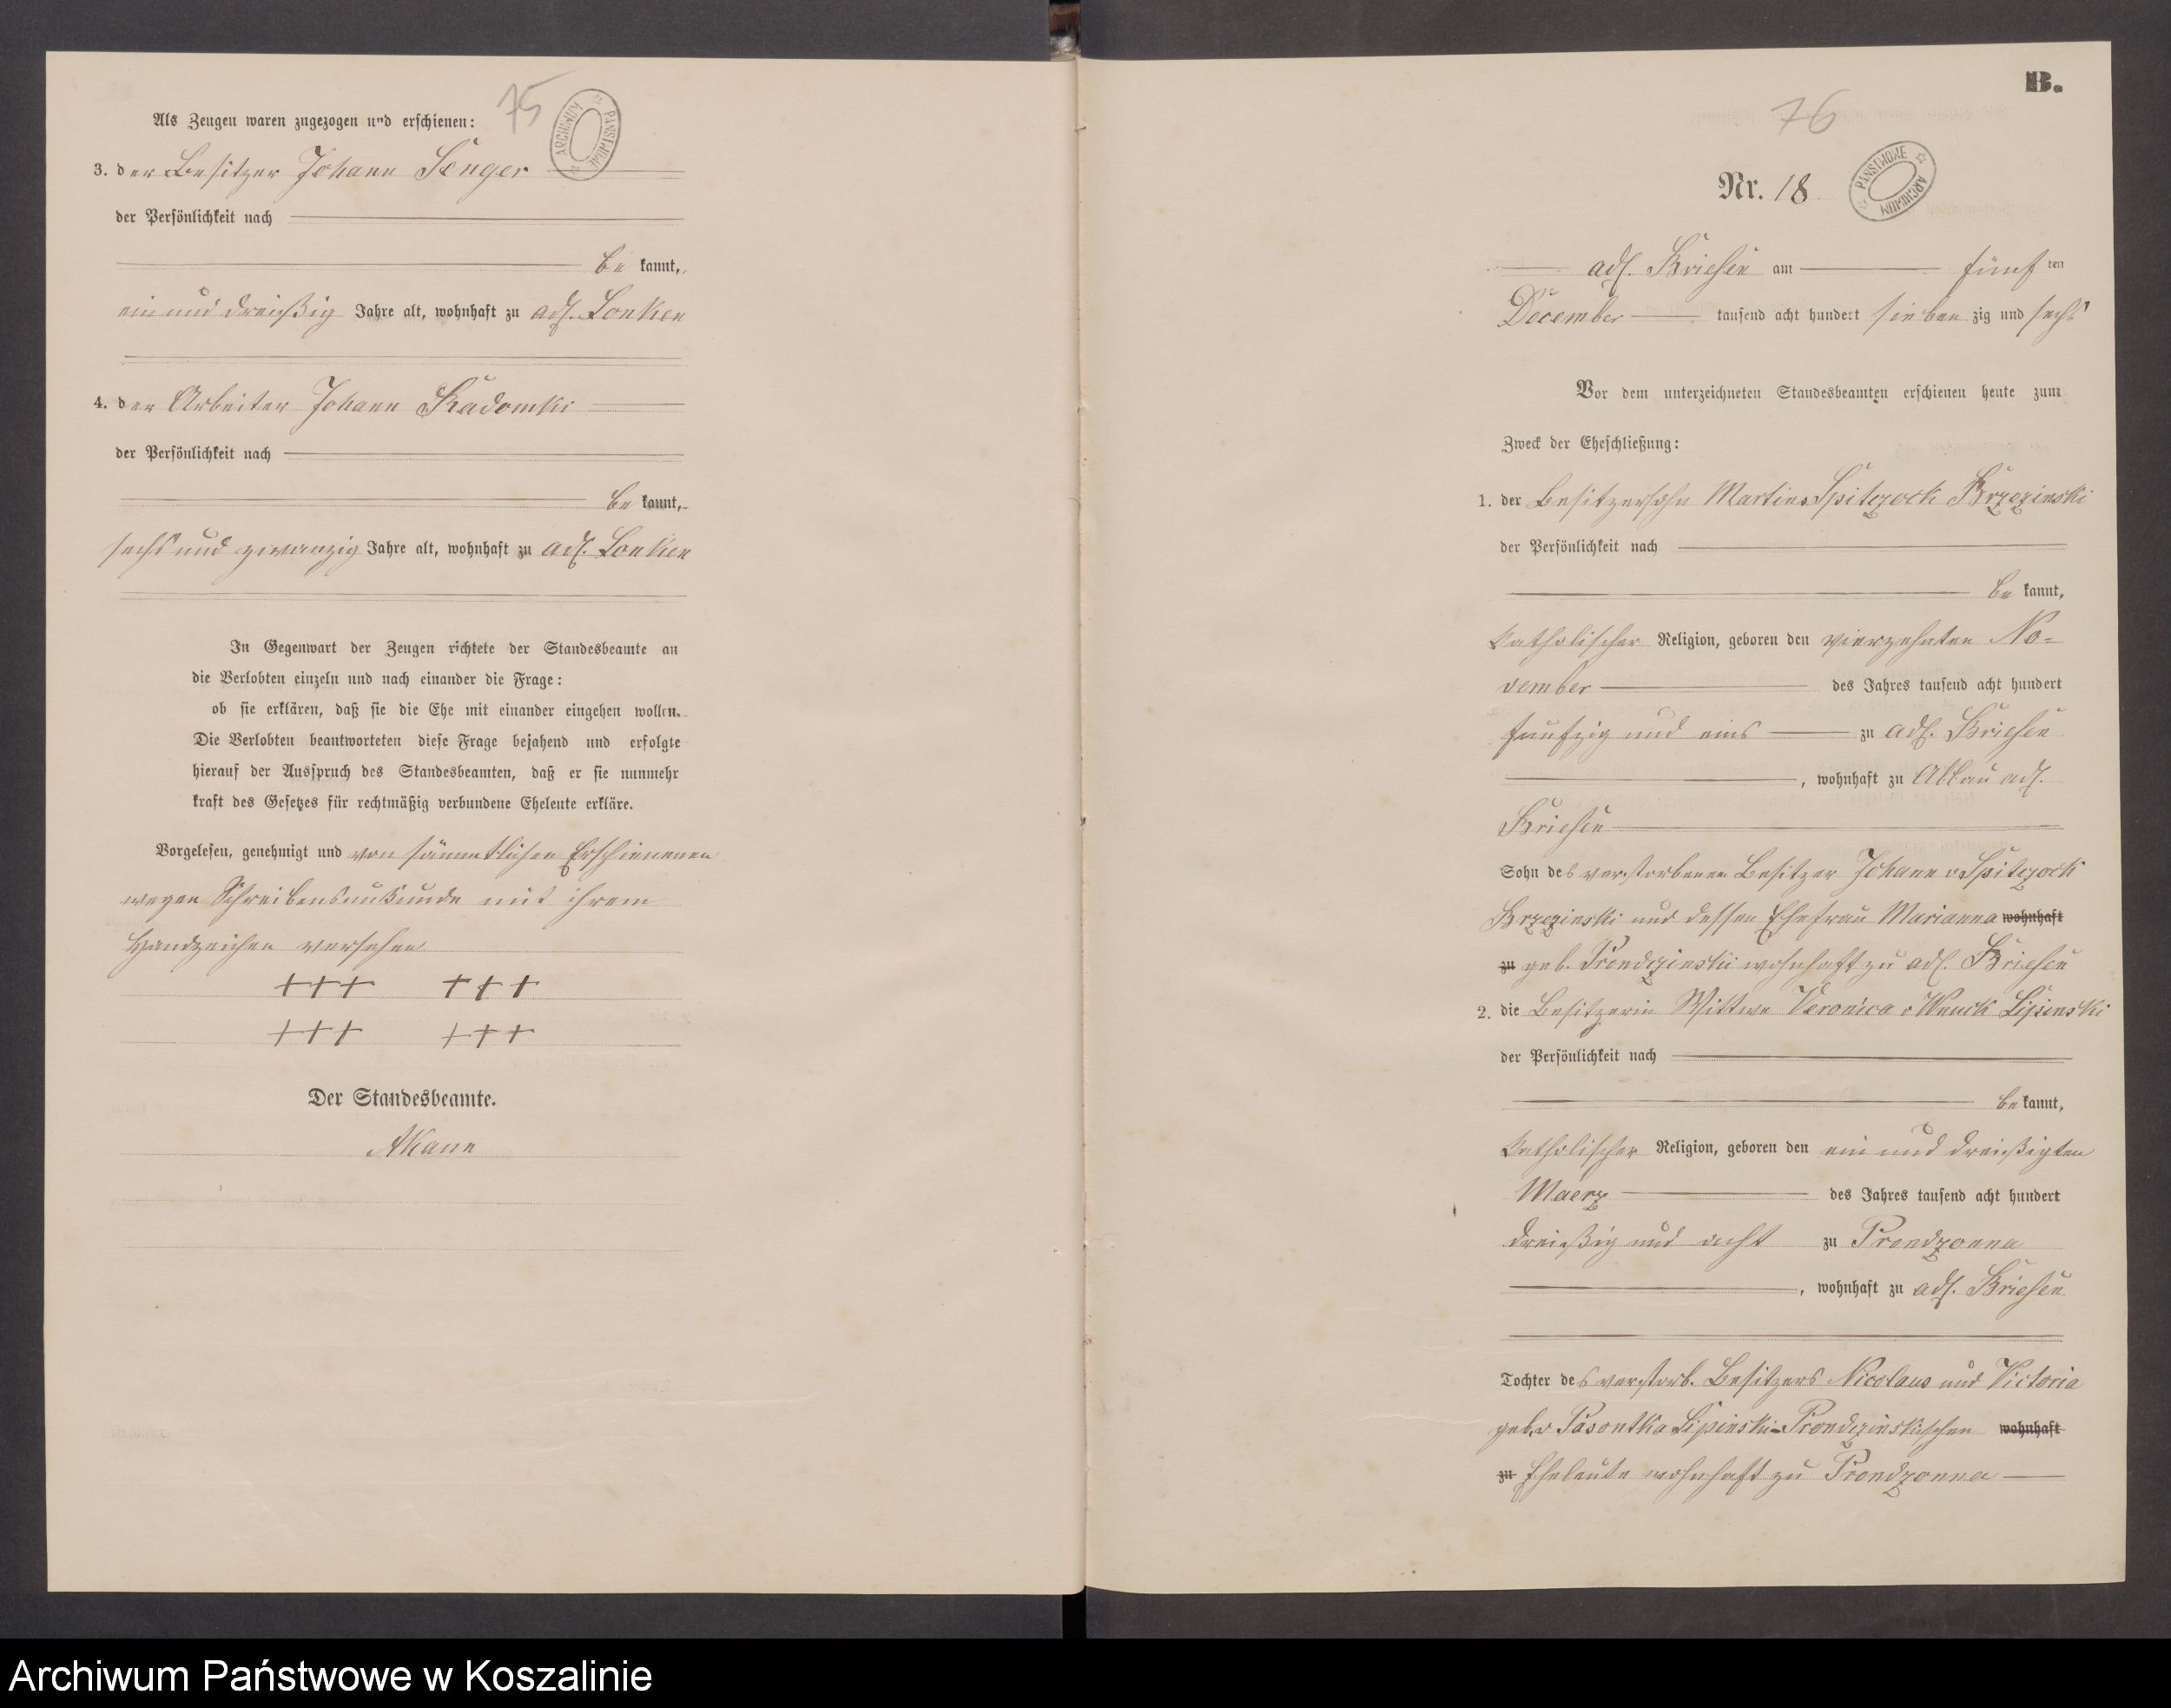 75
ARCHIWUM PAŃSTWOWE
Als Zeugen waren zugezogen und erschienen:
3. der Besitzer Johann Senger
der Persönlichkeit nach
be kannt,
ein und dreißig Jahre alt, wohnhaft zu adl. Lonken
4. der Arbeiter Johann Radomki
der Persönlichkeit nach
be kannt,
sechs und zwanzig Jahre alt, wohnhaft zu adl. Lonken
In Gegenwart der Zeugen richtete der Standesbeamte an
die Verlobten einzeln und nach einander die Frage:
ob sie erklären, daß sie die Ehe mit einander eingehen wollen.
Die Verlobten beantworteten diese Frage bejahend und erfolgte
hierauf der Ausspruch des Standesbeamten, daß er sie nunmehr
kraft des Gesetzes für rechtmäßig verbundene Eheleute erkläre.
Vorgelesen, genehmigt und von sämmtlichen Erschienenen
wegen Schreibensunkunde mit ihrem
Handzeichen versehen
+++ +++
+++ +++
Der Standesbeamte.
B.
76
Nr. 18
PAŃSTWOWE ARCHIWUM
adl. Briesen am fünf ten
December tausend acht hundert sieben zig und sechs
Vor dem unterzeichneten Standesbeamten erschienen heute zum
Zweck der Eheschließung:
1. der Besitzersohn Martin v Spiczock Brzezinski
der Persönlichkeit nach
be kannt,
katholischer Religion, geboren den vierzehnten No-
vember des Jahres tausend acht hundert
funfzig und eins zu adl. Briesen
, wohnhaft zu Abbau adl.
Briesen
Sohn des verstorbenen Besitzer Johann v Spiczock
Brzezinski und dessen Ehefrau Marianna wohnhaft
zu geb. Prondzinski wohnhaft zu adl. Briesen
2. die Besitzerin Wittwe Veronica v Wnuck Lipinski
der Persönlichkeit nach
be kannt,
katholischer Religion, geboren den ein und dreißigten
Maerz des Jahres tausend acht hundert
dreißig und acht zu Prondzonna
, wohnhaft zu adl. Briesen
Tochter des verstorb. Besitzers Nicolaus und Victoria
geb. v Lipinski-Prondzinskischen wohnhaft
zu Eheleute wohnhaft zu Prondzonna
Archiwum Państwowe w Koszalinie